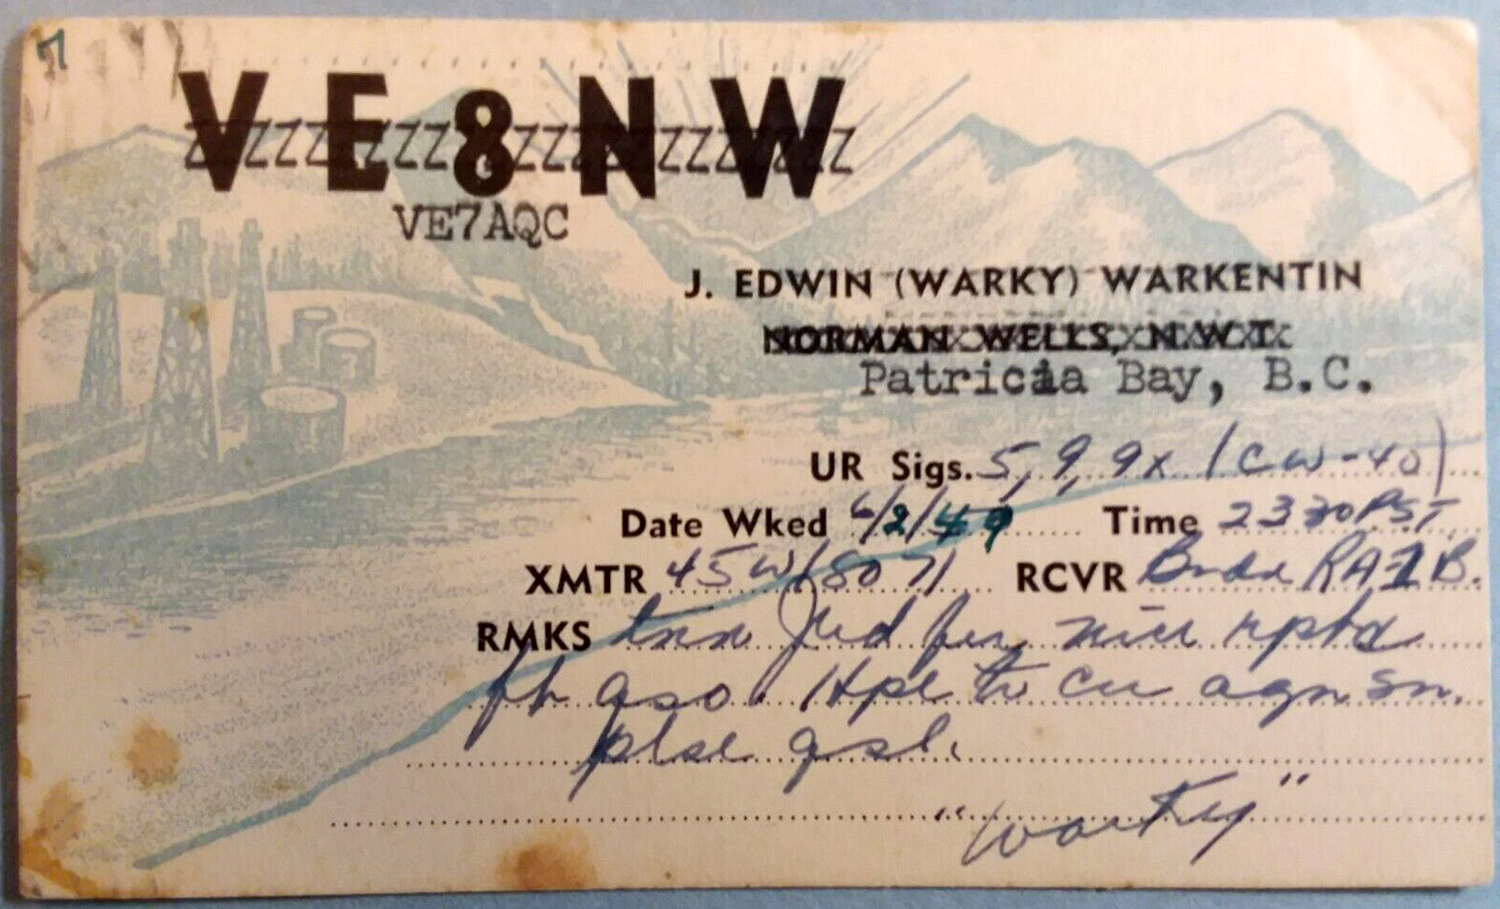 7
VE8NW
ZZZZZZZZZZZZZZZZZZZZ
VE7AQC
J. EDWIN (WARKY) WARKENTIN
NORMAN WELLS, N.W.T.
Patricia Bay, B.C.
UR Sigs. 5, 9, 9x (CW-40)
Date Wked 6/2/49 Time 2330 PST
XMTR 45W(807) RCVR Bndx RA-1B.
RMKS tnx Jud fer nice rptd
ph qso. Hpe to cu agn sn.
plse qsl.
"Warky"